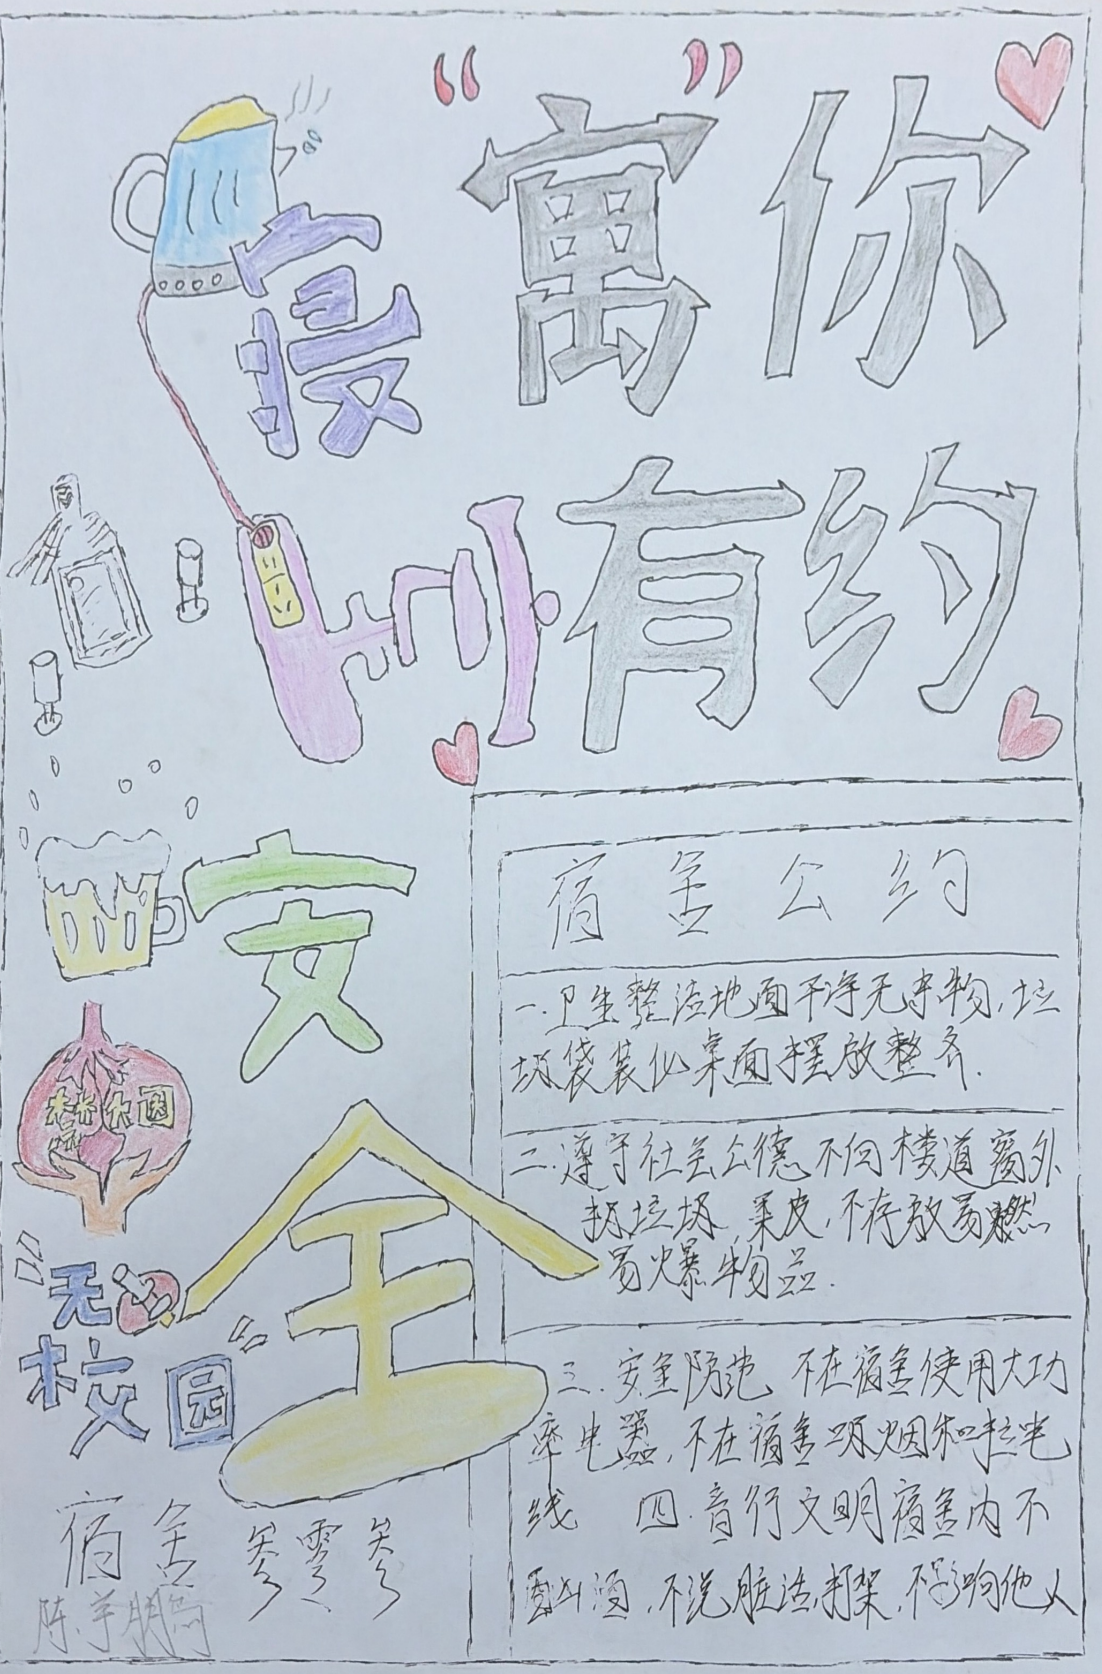 “寓”你
有约
寝
室
安
全
禁
校园
无烟
校园
宿舍公约
一.卫生整洁地面干净无杂物,垃
圾袋装化桌面摆放整齐.
二.遵守社会公德不向楼道窗外
扔垃圾,果皮,不存放易燃
易爆物品.
三.安全防范 不在宿舍使用大功
率电器,不在宿舍吸烟和拉电
线 四.言行文明宿舍内不
酗酒,不说脏话,打架,不影响他人
宿舍
陈羊鹏